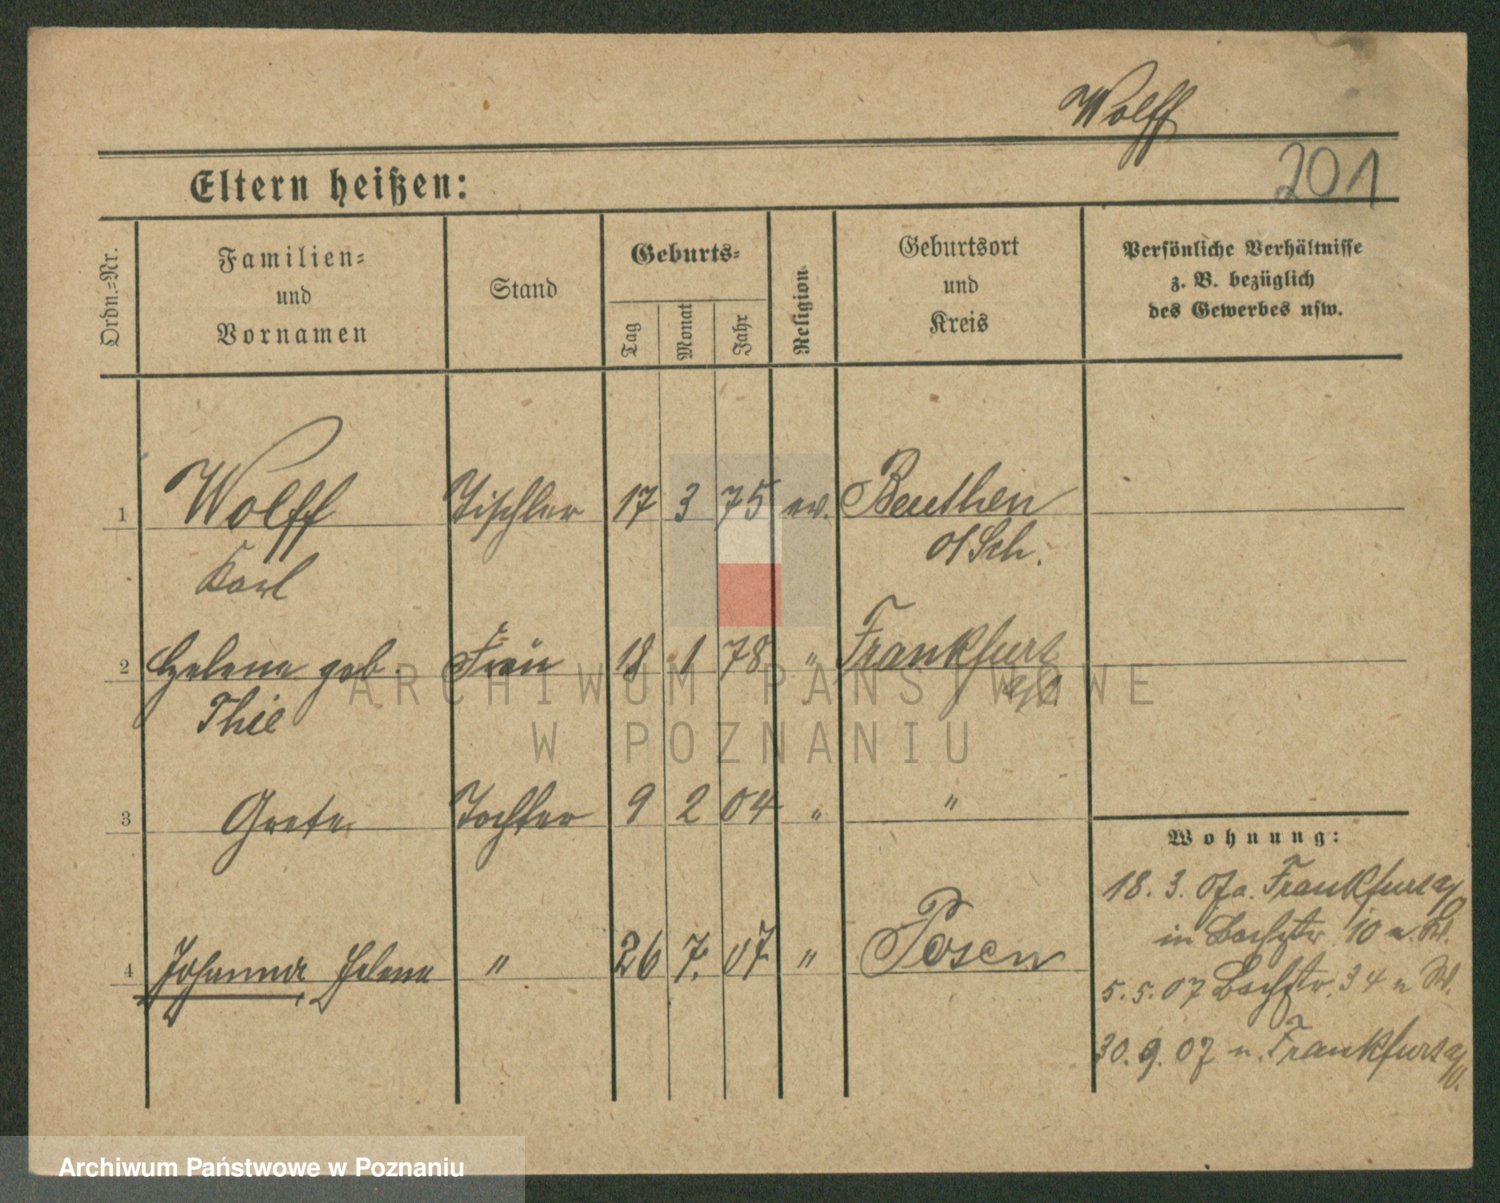 Wolff
201
Eltern heißen:
Ordn.-Nr.
Familien-
und
Vornamen
Stand
Geburts-
Tag
Monat
Jahr
Religion
Geburtsort
und
Kreis
Persönliche Verhältnisse
z. B. bezüglich
des Gewerbes usw.
1 Wolff Tischler 17 3 75 ev. Beuthen
Karl O/Sch.
2 Helene geb. Frau 18 1 78 " Frankfurt
Thie a/O
3 Grete Tochter 9 2 04 " "
4 Johanna Helene " 26 7. 07 " Posen
Wohnung:
18. 3. 07 a. Frankfurt a/O
in Bachstr. 10 n.
5. 5. 07 Bachstr. 34 n
30. 9. 07 n. Frankfurt a/O.
ARCHIWUM PAŃSTWOWE
W POZNANIU
Archiwum Państwowe w Poznaniu